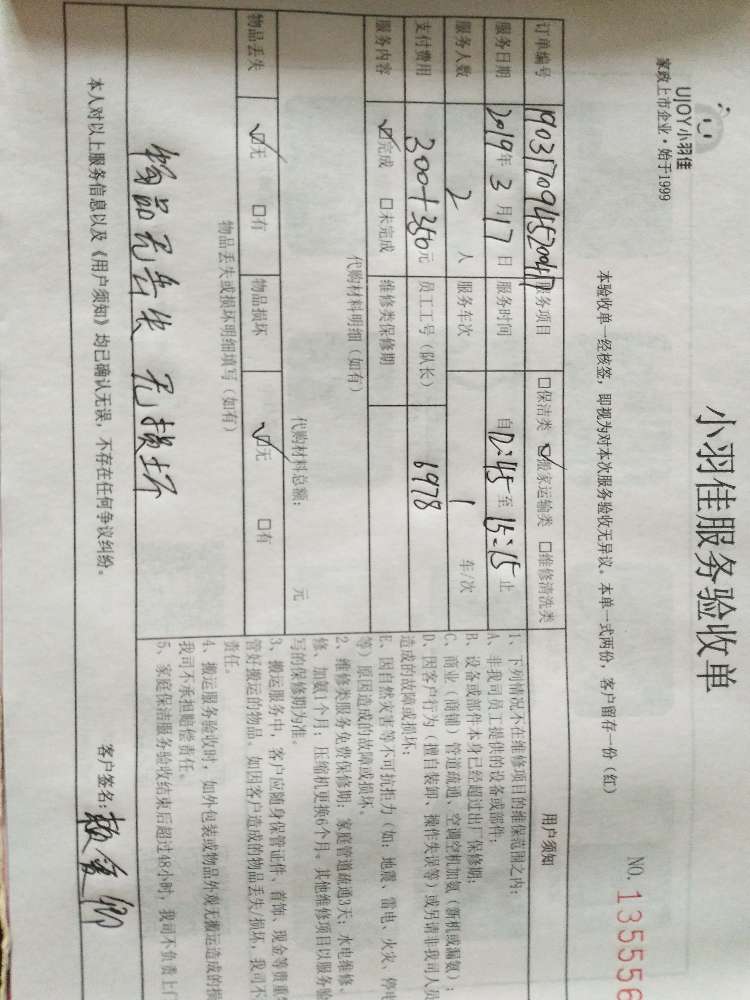 UJOY小羽佳
家政上市企业·始于1999
小羽佳服务验收单
NO. 135556
本验收单一经核签，即视为对本次服务验收无异议。本单一式两份，客户留存一份（红）
订单编号 服务项目 □保洁类 ☑搬家运输类 □维修清洗类
服务日期 2019年3月17日 服务时间 自12:45至15:15止
服务人数 2人 服务车次 1 车/次
支付费用 300+350元 员工工号（队长） 6978
服务内容 ☑完成 □未完成 维修类保修期
代购材料明细（如有）
代购材料总额： 元
物品丢失 ☑无 □有 物品损坏 ☑无 □有
物品丢失或损坏明细填写（如有）
物品无丢失 无损坏
用户须知
1、下列情况不在维修项目的维保范围之内：
A、非我司员工提供的设备或部件；
B、设备或部件本身已经超过出厂保修期；
C、商业（商铺）管道疏通、空调空机加氨（新机或漏氨）；
D、因客户行为（擅自装卸、操作失误等）或另请非我司人员
造成的故障或损坏；
E、因自然灾害等不可抗拒力（如：地震、雷电、火灾、停电
等）原因造成的故障或损坏。
2、维修类服务免费保修期：家庭管道疏通3天；水电维修、
修、加氨1个月；压缩机更换6个月。其他维修项目以服务验
写的保修期为准。
3、搬运服务中，客户应随身保管证件、首饰、现金等贵重
管好搬运的物品。如因客户造成的物品丢失/损坏，我司不
责任。
4、搬运服务验收时，如外包装或物品外观无搬运造成的损
我司不承担赔偿责任。
5、家庭保洁服务验收结束后超过48小时，我司不负责上门
本人对以上服务信息以及《用户须知》均已确认无误，不存在任何争议纠纷。
客户签名：